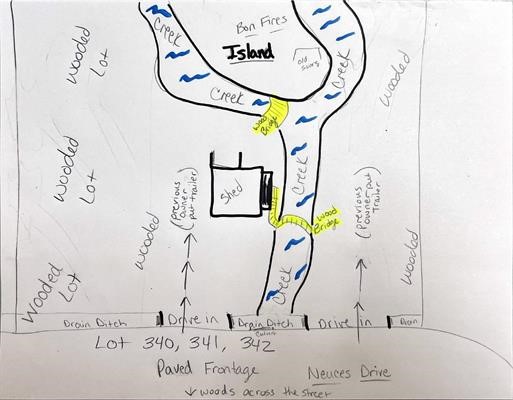 Bon Fires
Island
Old Stairs
Creek
Creek
Creek
Wooded
Lot
Wooded
Wood
Bridge
Creek
Wooded
Lot
Shed
(previous
owner put
trailer)
(previous
owner put
Trailer)
Wood
Bridge
Wooded
Wooded
Wooded
Lot
Creek
Drain Ditch
Drive in
Drain Ditch
Drive in
Drain
Culvert
Lot 340, 341, 342
Paved Frontage
Neuces Drive
↓ woods across the street